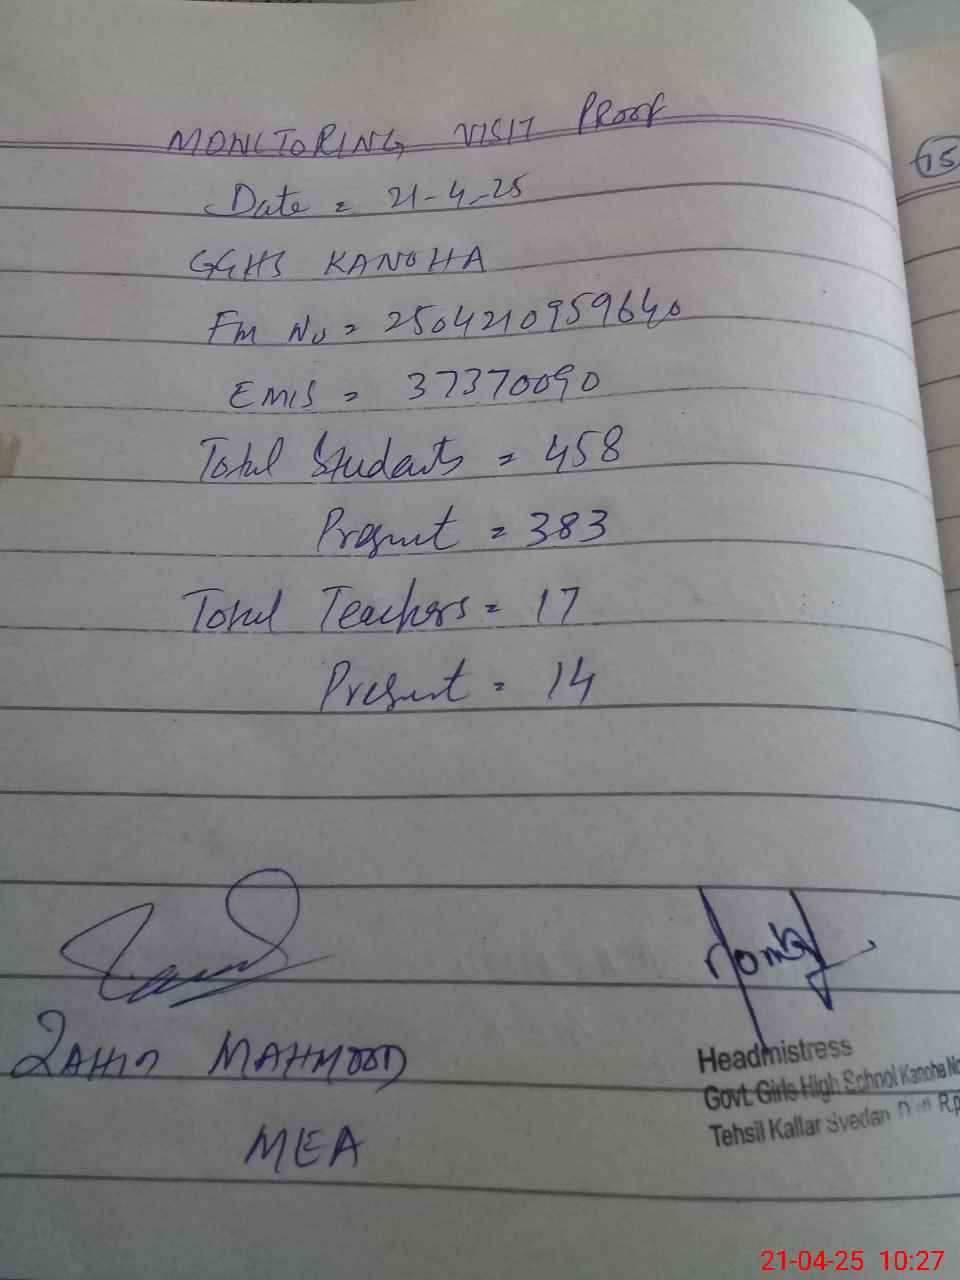 MONITORING VISIT PROOF
15
Date = 21-4-25
GGHS KANOHA
Fm No = 2504210959640
EMIS = 37370090
Total Students = 458
Present = 383
Total Teachers = 17
Present = 14
MAHMOOD
MEA
Headmistress
Govt. Girls High School Kanoha No
Tehsil Kallar Syedan Distt R.p
21-04-25 10:27